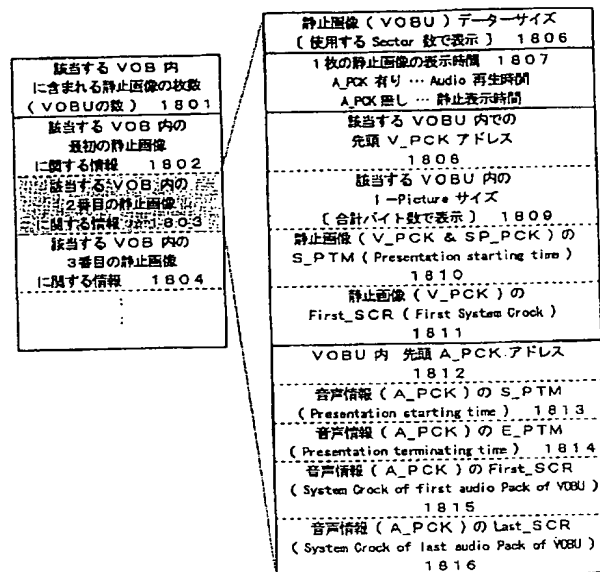 該当する VOB 内
に含まれる静止画像の枚数
( VOBUの数 ) 1801
該当する VOB 内の
最初の静止画像
に関する情報 1802
該当する VOB 内の
2番目の静止画像
に関する情報 1803
該当する VOB 内の
3番目の静止画像
に関する情報 1804
⋮
静止画像 ( VOBU ) データーサイズ
〔 使用する Sector 数で表示 〕 1806
1枚の静止画像の表示時間 1807
A_PCK 有り … Audio 再生時間
A_PCK 無し … 静止表示時間
該当する VOBU 内での
先頭 V_PCK アドレス
1808
該当する VOBU 内の
I-Picture サイズ
〔 合計バイト数で表示 〕 1809
静止画像 ( V_PCK & SP_PCK ) の
S_PTM ( Presentation starting time )
1810
静止画像 ( V_PCK ) の
First_SCR ( First System Crock )
1811
VOBU 内 先頭 A_PCK アドレス
1812
音声情報 ( A_PCK ) の S_PTM
( Presentation starting time ) 1813
音声情報 ( A_PCK ) の E_PTM
( Presentation terminating time ) 1814
音声情報 ( A_PCK ) の First_SCR
( System Crock of first audio Pack of VOBU )
1815
音声情報 ( A_PCK ) の Last_SCR
( System Crock of last audio Pack of VOBU )
1816